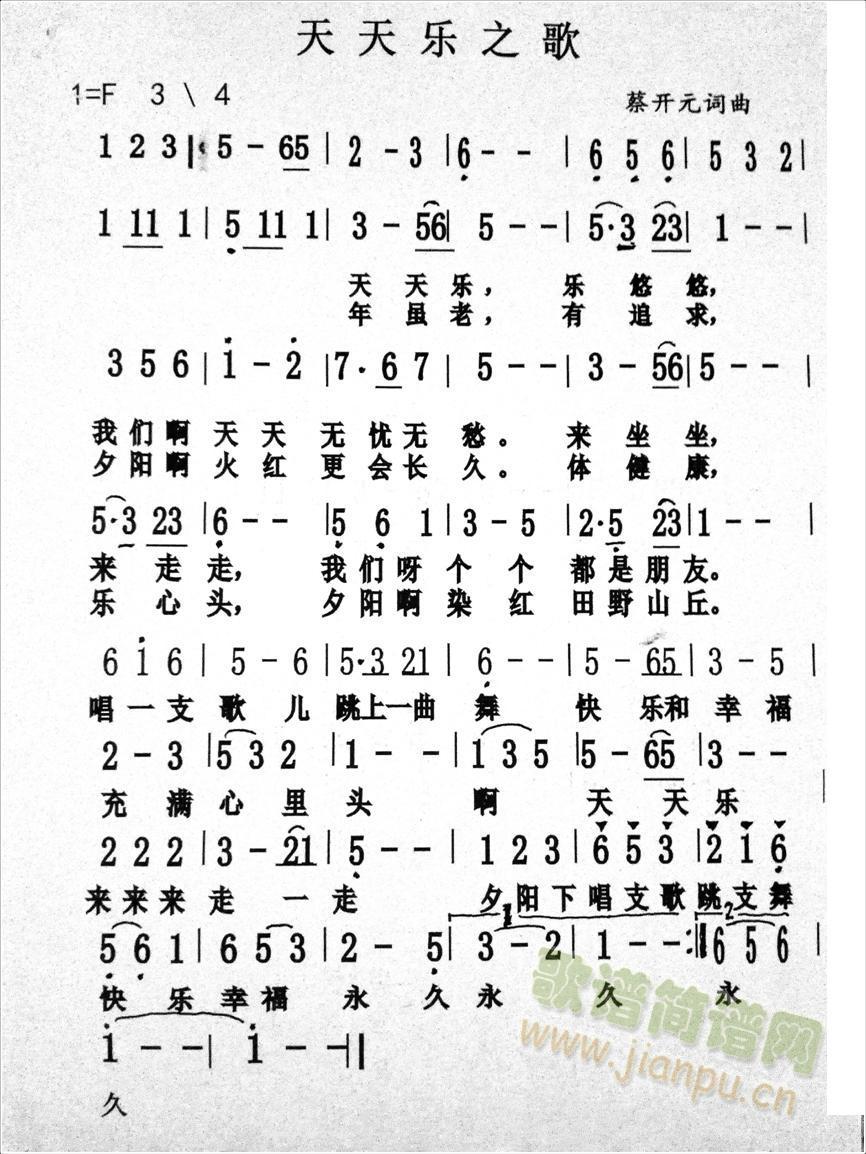 天天乐之歌
1=F 3 \ 4 蔡开元词曲
1 2 3 ‖: 5 - 65 | 2 - 3 | 6 - - | 6 5 6 | 5 3 2 |
1 11 1 | 5 11 1 | 3 - 56 | 5 - - | 5·3 23 | 1 - - |
天天乐， 乐悠悠，
年虽老， 有追求，
3 5 6 | 1 - 2 | 7·6 7 | 5 - - | 3 - 56 | 5 - - |
我们啊天天无忧无愁。来坐坐，
夕阳啊火红更会长久。体健康，
5·3 23 | 6 - - | 5 6 1 | 3 - 5 | 2·5 23 | 1 - - |
来走走， 我们呀个个都是朋友。
乐心头， 夕阳啊染红田野山丘。
6 1 6 | 5 - 6 | 5·3 21 | 6 - - | 5 - 65 | 3 - 5 |
唱一支歌儿跳上一曲舞 快乐和幸福
2 - 3 | 5 3 2 | 1 - - | 1 3 5 | 5 - 65 | 3 - - |
充满心里头 啊 天天乐
2 2 2 | 3 - 21 | 5 - - | 1 2 3 | 6 5 3 | 2 1 6 |
来来来走一走 夕阳下唱支歌跳支舞
1 2
5 6 1 | 6 5 3 | 2 - 5 | 3 - 2 | 1 - - :‖ 6 5 6 |
快乐幸福永久永久永
1 - - | 1 - - ‖
久
歌谱简谱网
www.jianpu.cn